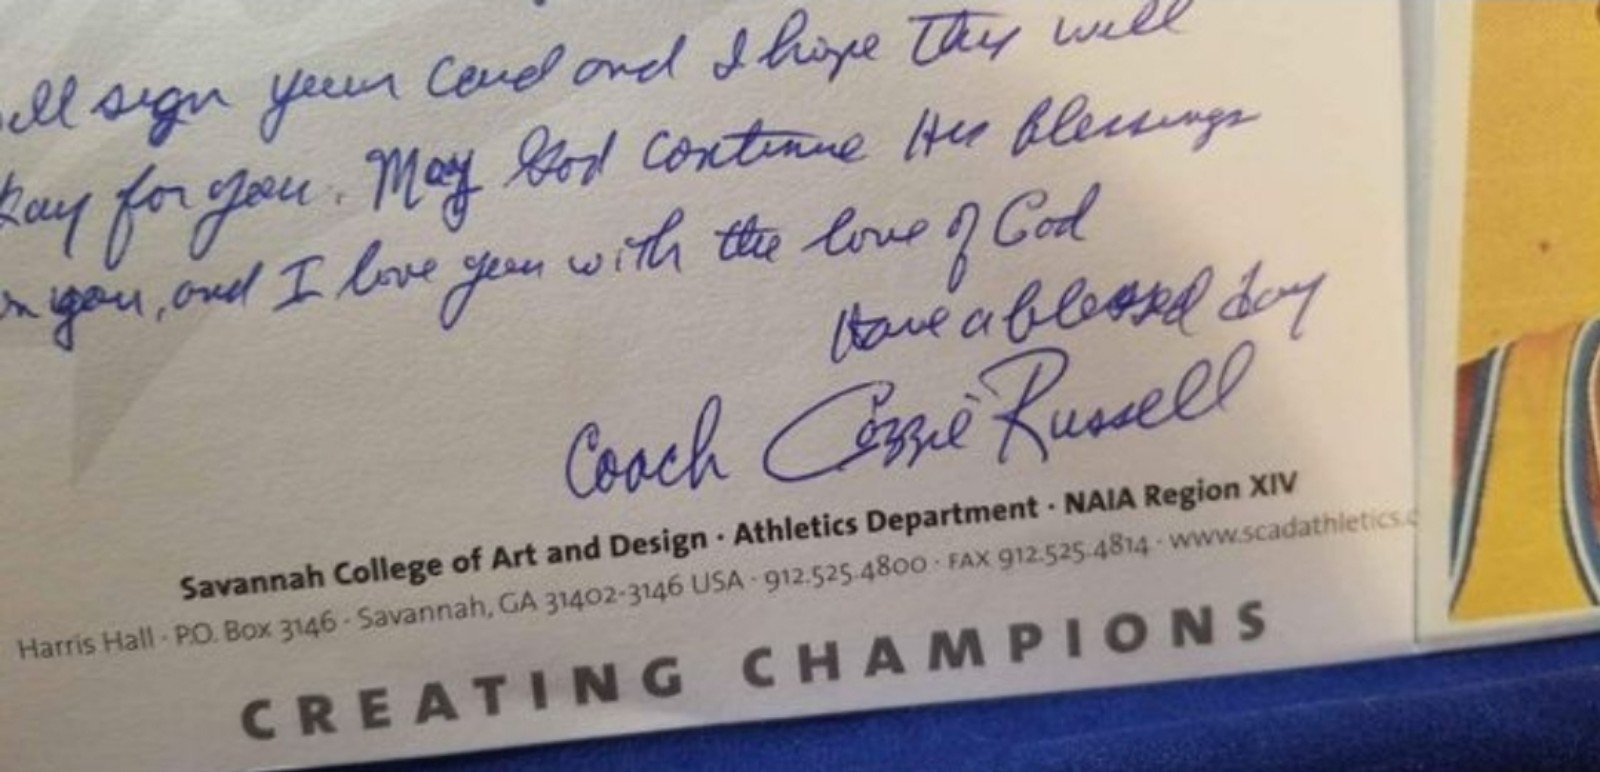 sign your card and I hope this will
okay for you. May God continue His blessings
on you, and I love you with the love of God
Have a blessed day
Coach Cazzie Russell
Savannah College of Art and Design · Athletics Department · NAIA Region XIV
Harris Hall · P.O. Box 3146 · Savannah, GA 31402-3146 USA · 912.525.4800 · FAX 912.525.4814 · www.scadathletics.c
CREATING CHAMPIONS